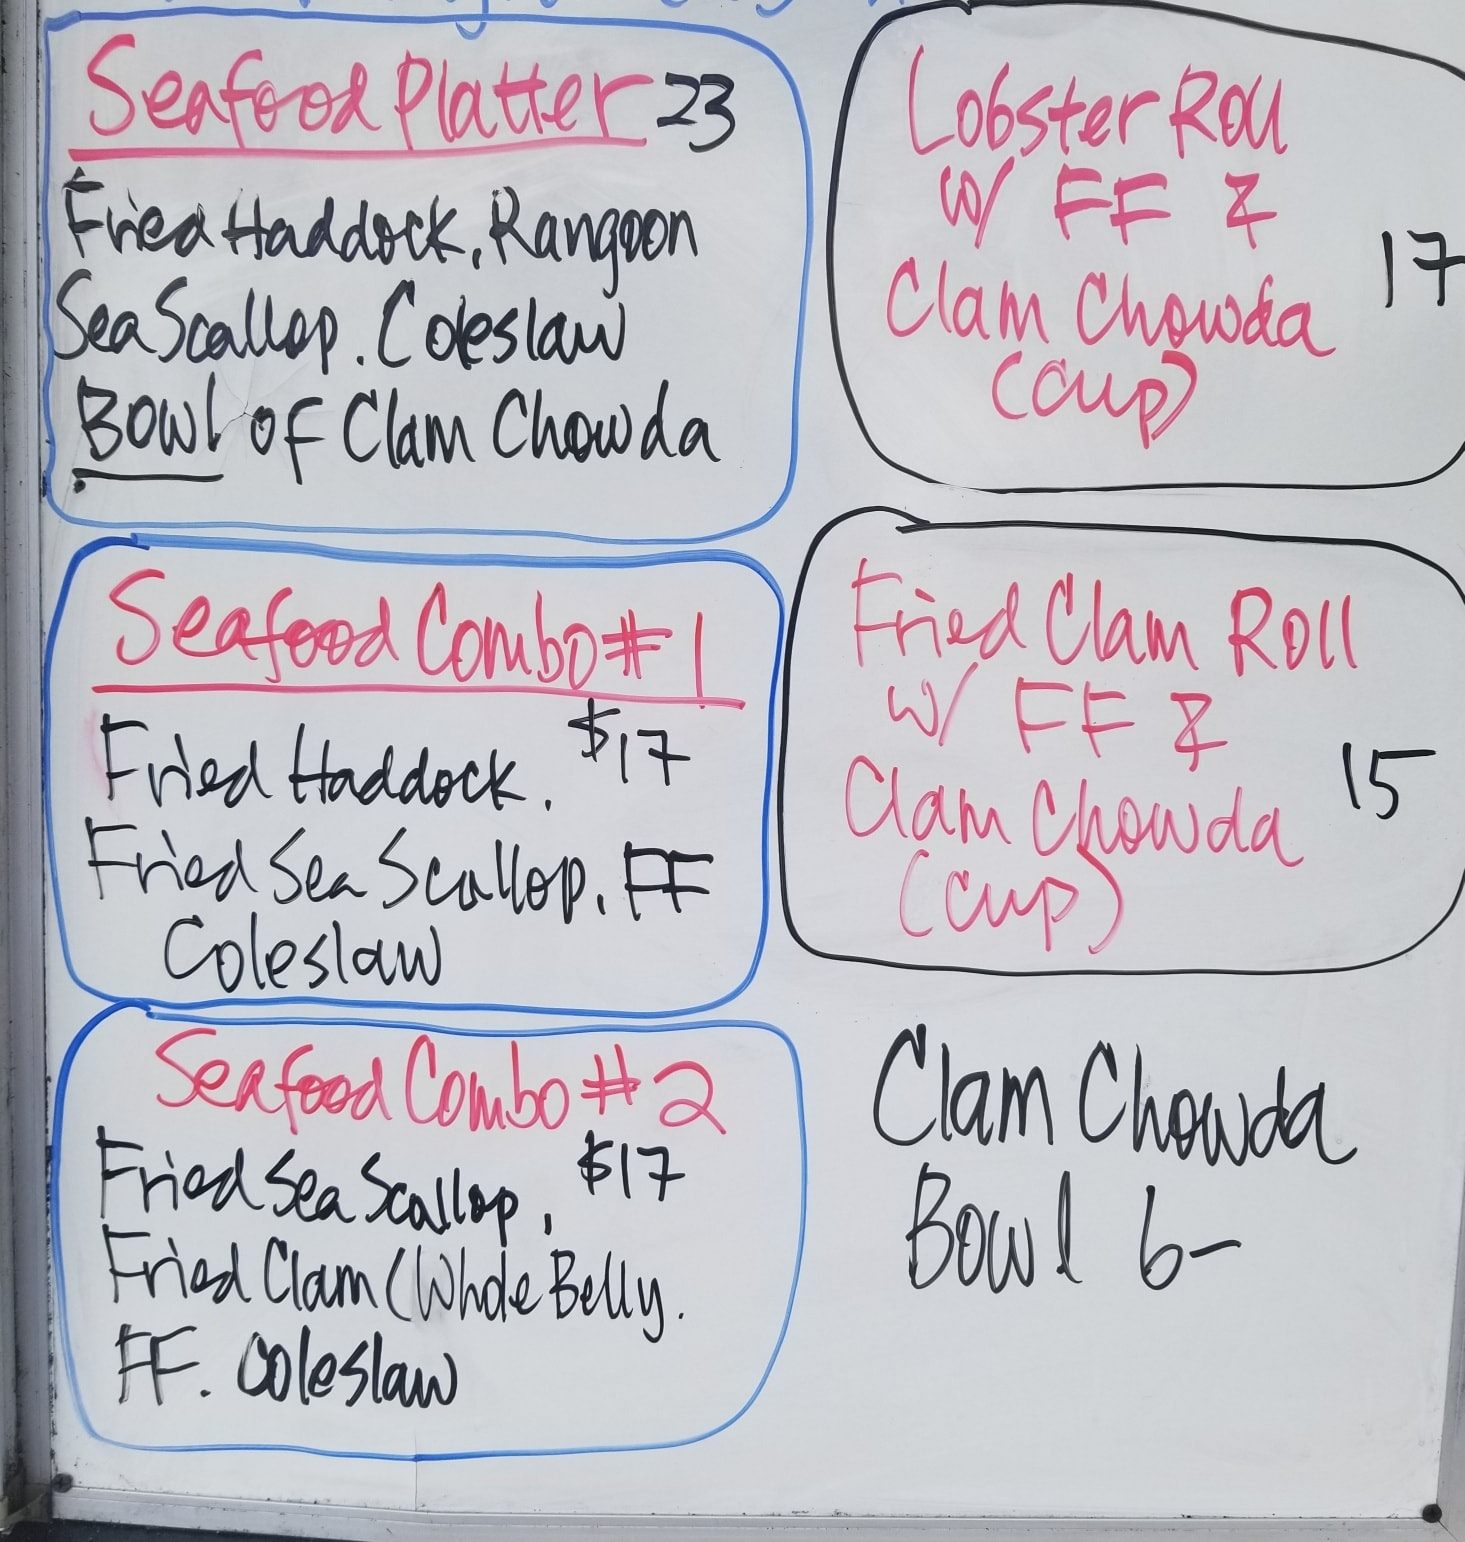 Seafood Platter 23
Fried Haddock, Rangoon
Sea Scallop. Coleslaw
Bowl of Clam Chowda
Seafood Combo #1
Fried Haddock. $17
Fried Sea Scallop. FF
Coleslaw
Seafood Combo #2
Fried Sea Scallop, $17
Fried Clam (Whole Belly.
FF. Coleslaw
Lobster Roll
w/ FF &
Clam Chowda 17
(cup)
Fried Clam Roll
w/ FF &
Clam Chowda 15
(cup)
Clam Chowda
Bowl 6-